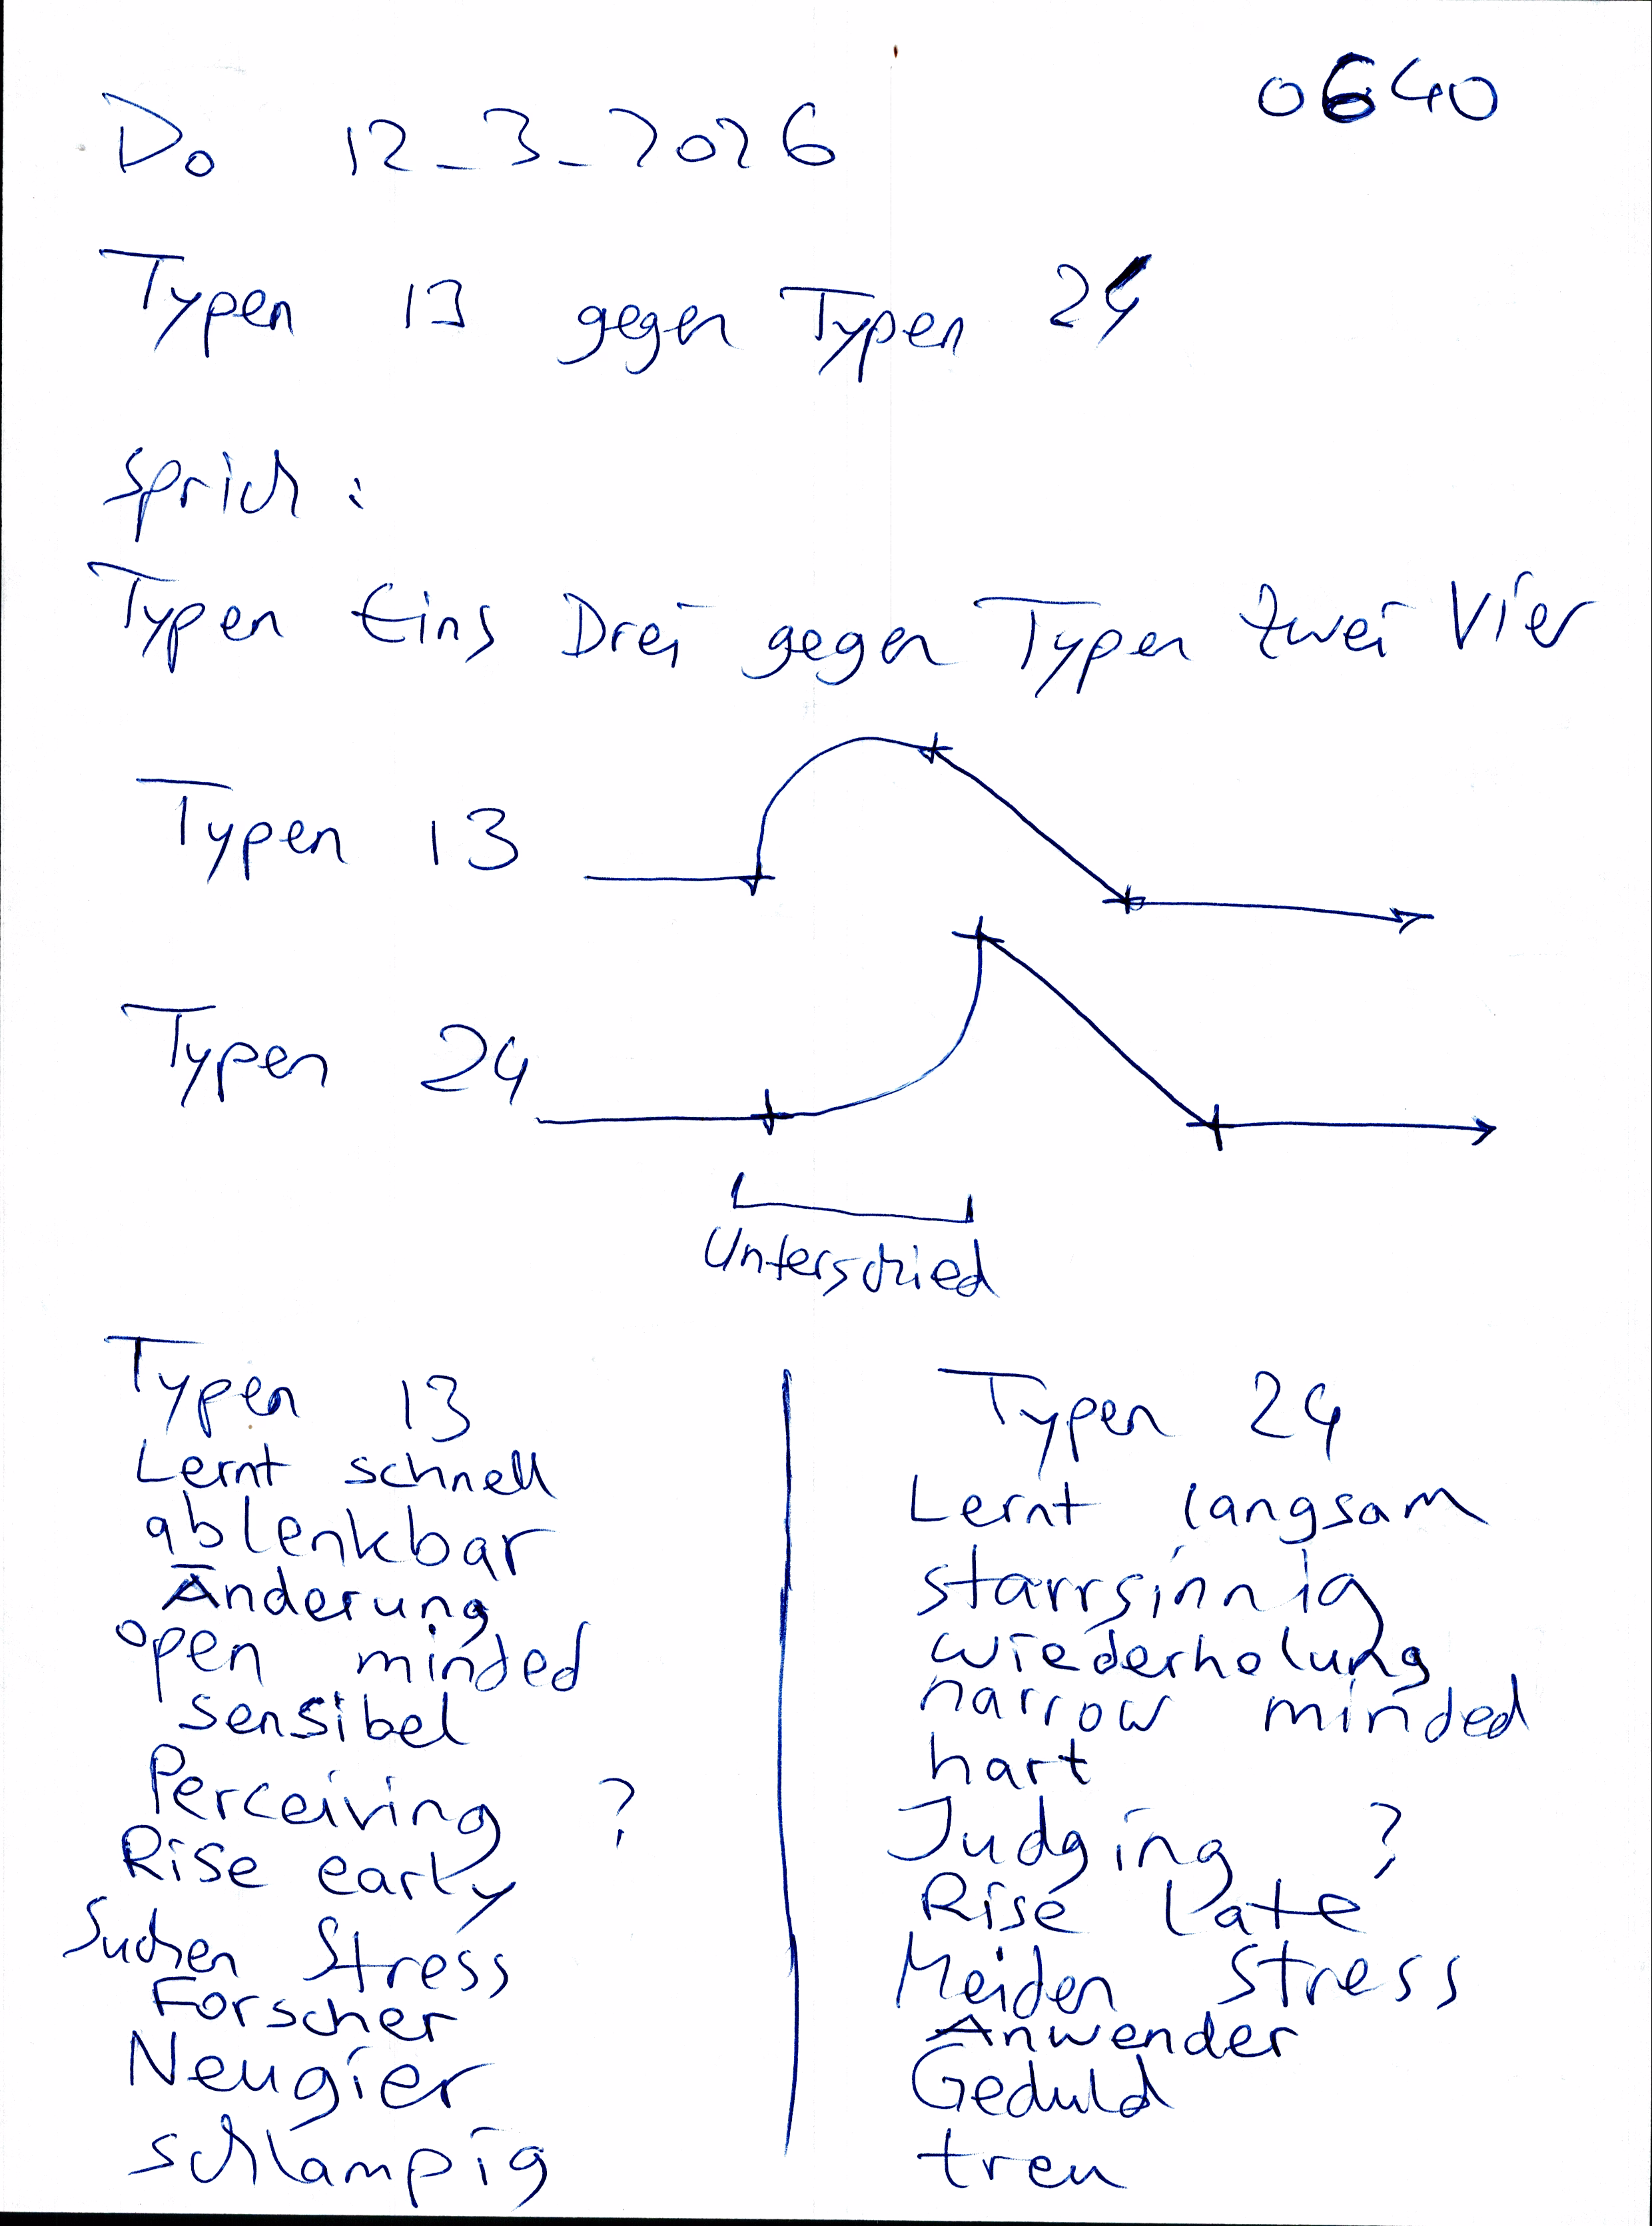 0640
Do 12-3-2026
Typen 13 gegen Typen 24
sprich:
Typen Eins Drei gegen Typen zwei Vier
Typen 13
Typen 24
Unterschied
Typen 13
Lernt schnell
ablenkbar
Änderung
open minded
sensibel
Perceiving ?
Rise early
Suchen Stress
Forscher
Neugier
schlampig
Typen 24
Lernt langsam
starrsinnig
wiederholung
narrow minded
hart
Judging ?
Rise Late
Meiden Stress
Anwender
Geduld
treu